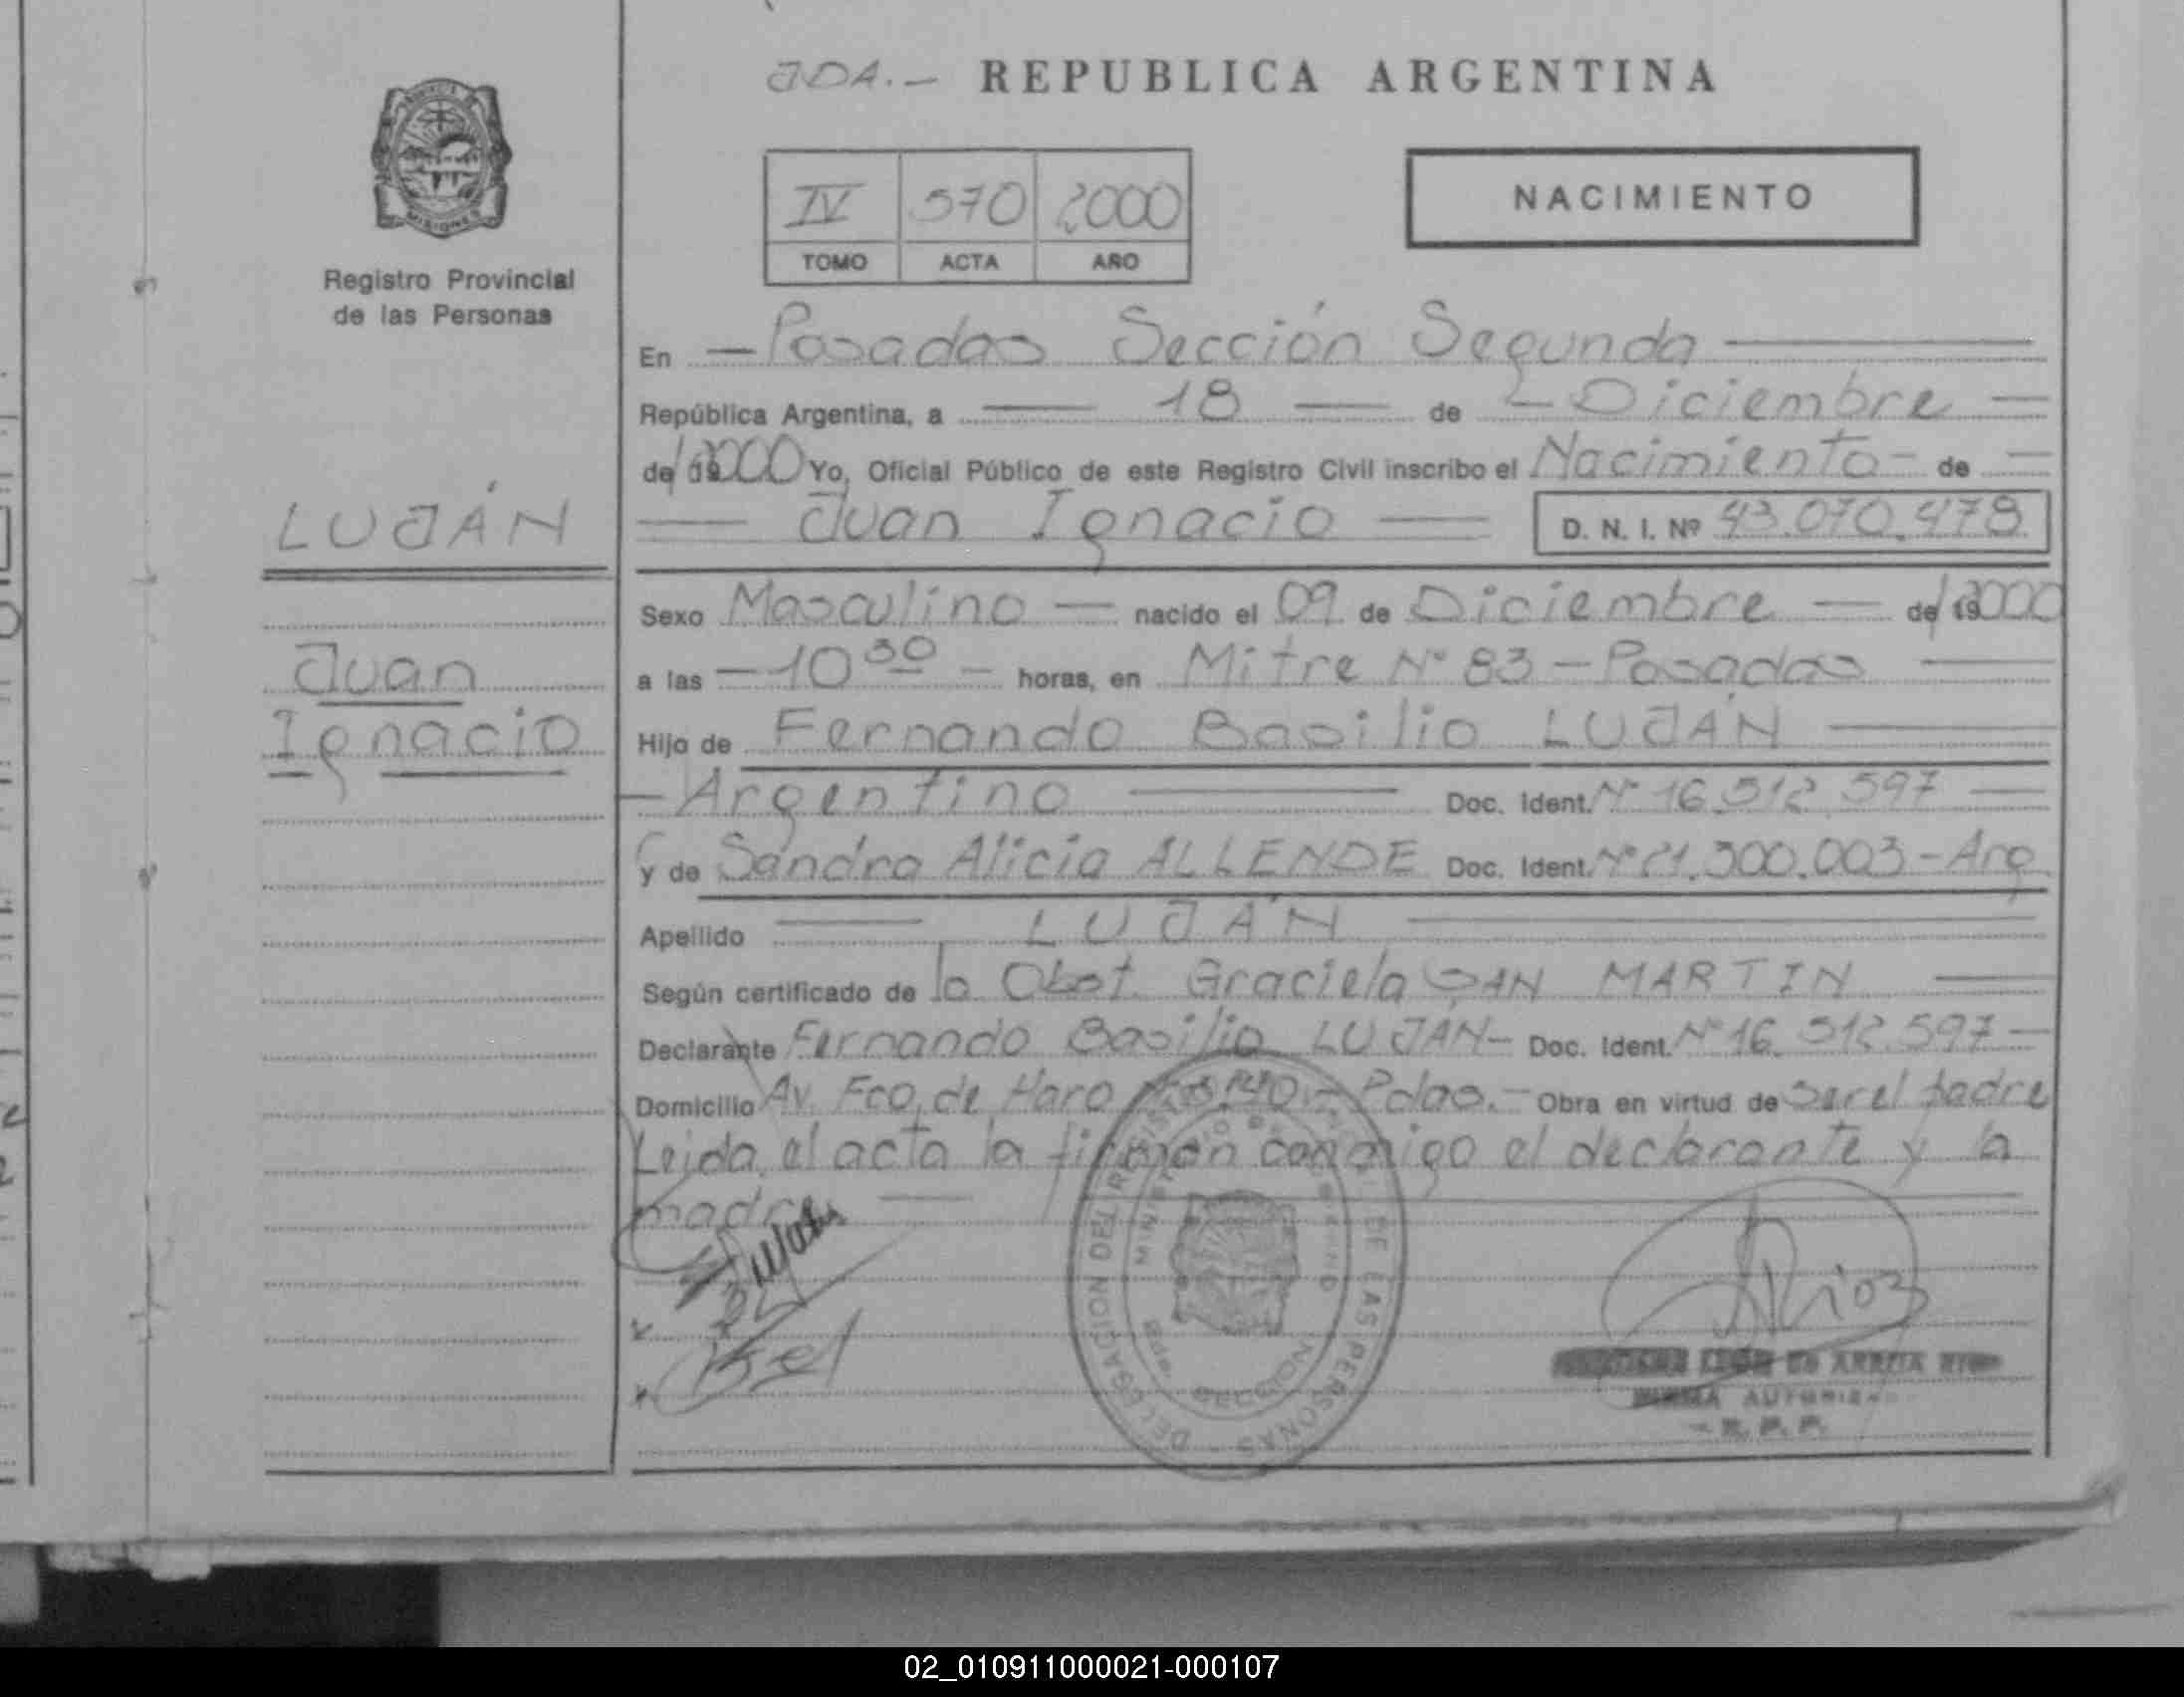 JDA.- REPUBLICA ARGENTINA
MISIONES
Registro Provincial
de las Personas
IV 570 2000
TOMO ACTA AÑO
NACIMIENTO
En - Posadas Sección Segunda
República Argentina, a 18 de - Diciembre
de 19 2000 Yo, Oficial Público de este Registro Civil inscribo el Nacimiento - de
LUJÁN
Juan Ignacio D. N. I. Nº 43.070.478
Sexo Masculino - nacido el 09 de Diciembre - de 19 2000
Juan
Ignacio
a las - 10 30 - horas, en Mitre Nº 83 - Posadas
Hijo de Fernando Basilio LUJÁN
- Argentino Doc. Ident. Nº 16.512.597
y de Sandra Alicia ALLENDE Doc. Ident. Nº 21.300.003 - Arg
Apellido LUJÁN
Según certificado de la Obst. Graciela SAN MARTIN
Declarante Fernando Basilio LUJÁN - Doc. Ident. Nº 16.512.597 -
Domicilio Av. Fco. de Haro - Pdas. - Obra en virtud de ser el padre
Leida el acta la firman conmigo el declarante y la
madre
DELEGACION DEL REGISTRO DE LAS PERSONAS
MINISTERIO DE GOBIERNO
SECCION
Rios
DE ARRUA RIOS
FIRMA AUTORIZADA
- R. P. P.
02_010911000021-000107